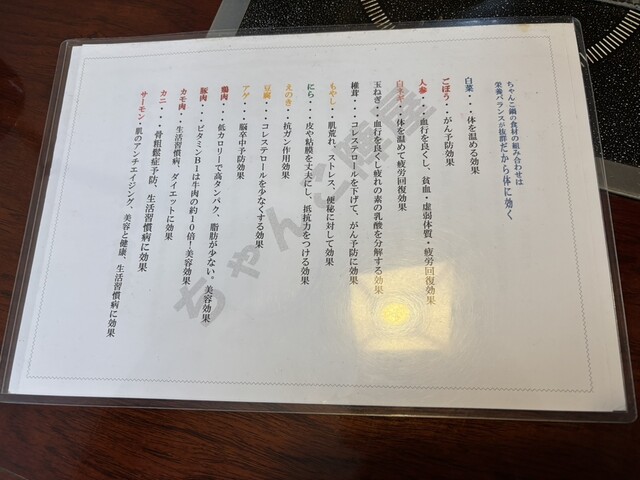 ちゃんこ鍋の食材の組み合わせは
栄養バランスが抜群だから体に効く
白菜・・・体を温める効果
ごぼう・・がん予防効果
人参・・・血行を良くし、貧血・虚弱体質・疲労回復効果
白ネギ・・体を温めて疲労回復効果
玉ねぎ・・血行を良くし疲れの素の乳酸を分解する効果
椎茸・・・コレステロールを下げて、がん予防に効果
もやし・・肌荒れ、ストレス、便秘に対して効果
にら・・・皮や粘膜を丈夫にし、抵抗力をつける効果
えのき・・抗ガン作用効果
豆腐・・・コレステロールを少なくする効果
アゲ・・・脳卒中予防効果
鶏肉・・・低カロリーで高タンパク、脂肪が少ない。美容効果
豚肉・・・ビタミンB1は牛肉の約10倍！美容効果
カモ肉・・生活習慣病、ダイエットに効果
カニ・・・骨粗鬆症予防、生活習慣病に効果
サーモン・肌のアンチエイジング、美容と健康、生活習慣病に効果
ちゃんこ照屋